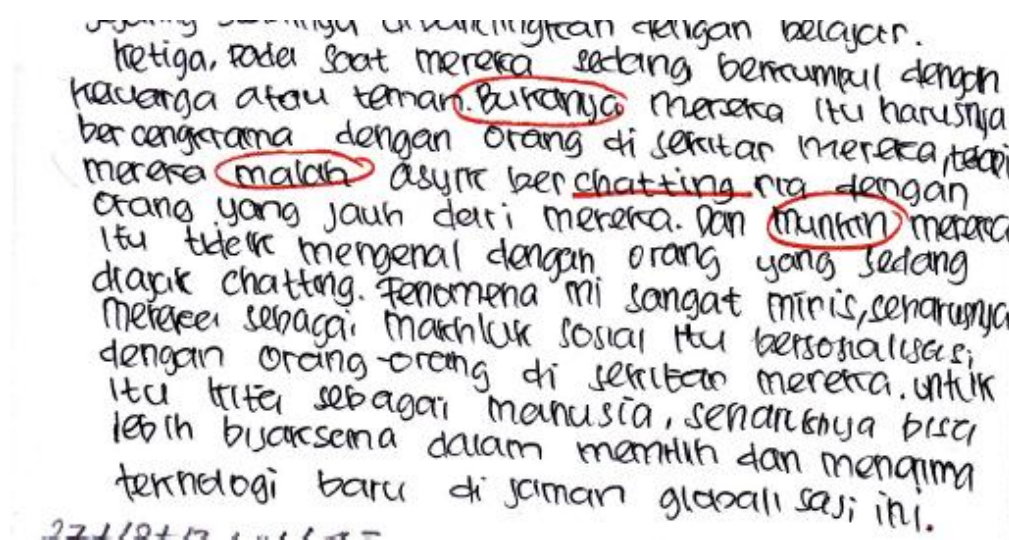 dengan belajar.
Ketiga, pada saat mereka sedang berkumpul dengan
keluarga atau teman. Bukanya mereka itu harusnya
bercengkrama dengan orang di sekitar mereka, tetapi
mereka malah asyik berchatting ria dengan
orang yang jauh dari mereka. Dan munkin mereka
itu tidak mengenal dengan orang yang sedang
diajak chatting. Fenomena ini sangat miris, seharusnya
mereka sebagai makhluk sosial itu bersosialisasi
dengan orang-orang di sekitar mereka. Untuk
itu kita sebagai manusia, seharusnya bisa
lebih bijaksana dalam memilih dan
teknologi baru di jaman globalisasi ini.